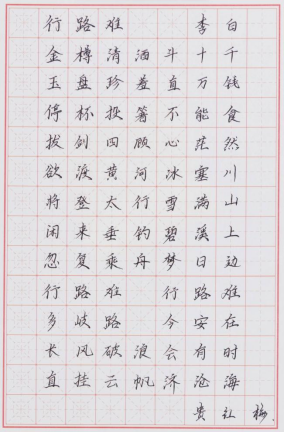 行路难 李白
金樽清酒斗十千
玉盘珍羞直万钱
停杯投箸不能食
拔剑四顾心茫然
欲渡黄河冰塞川
将登太行雪满山
闲来垂钓碧溪上
忽复乘舟梦日边
行路难 行路难
多歧路 今安在
长风破浪会有时
直挂云帆济沧海